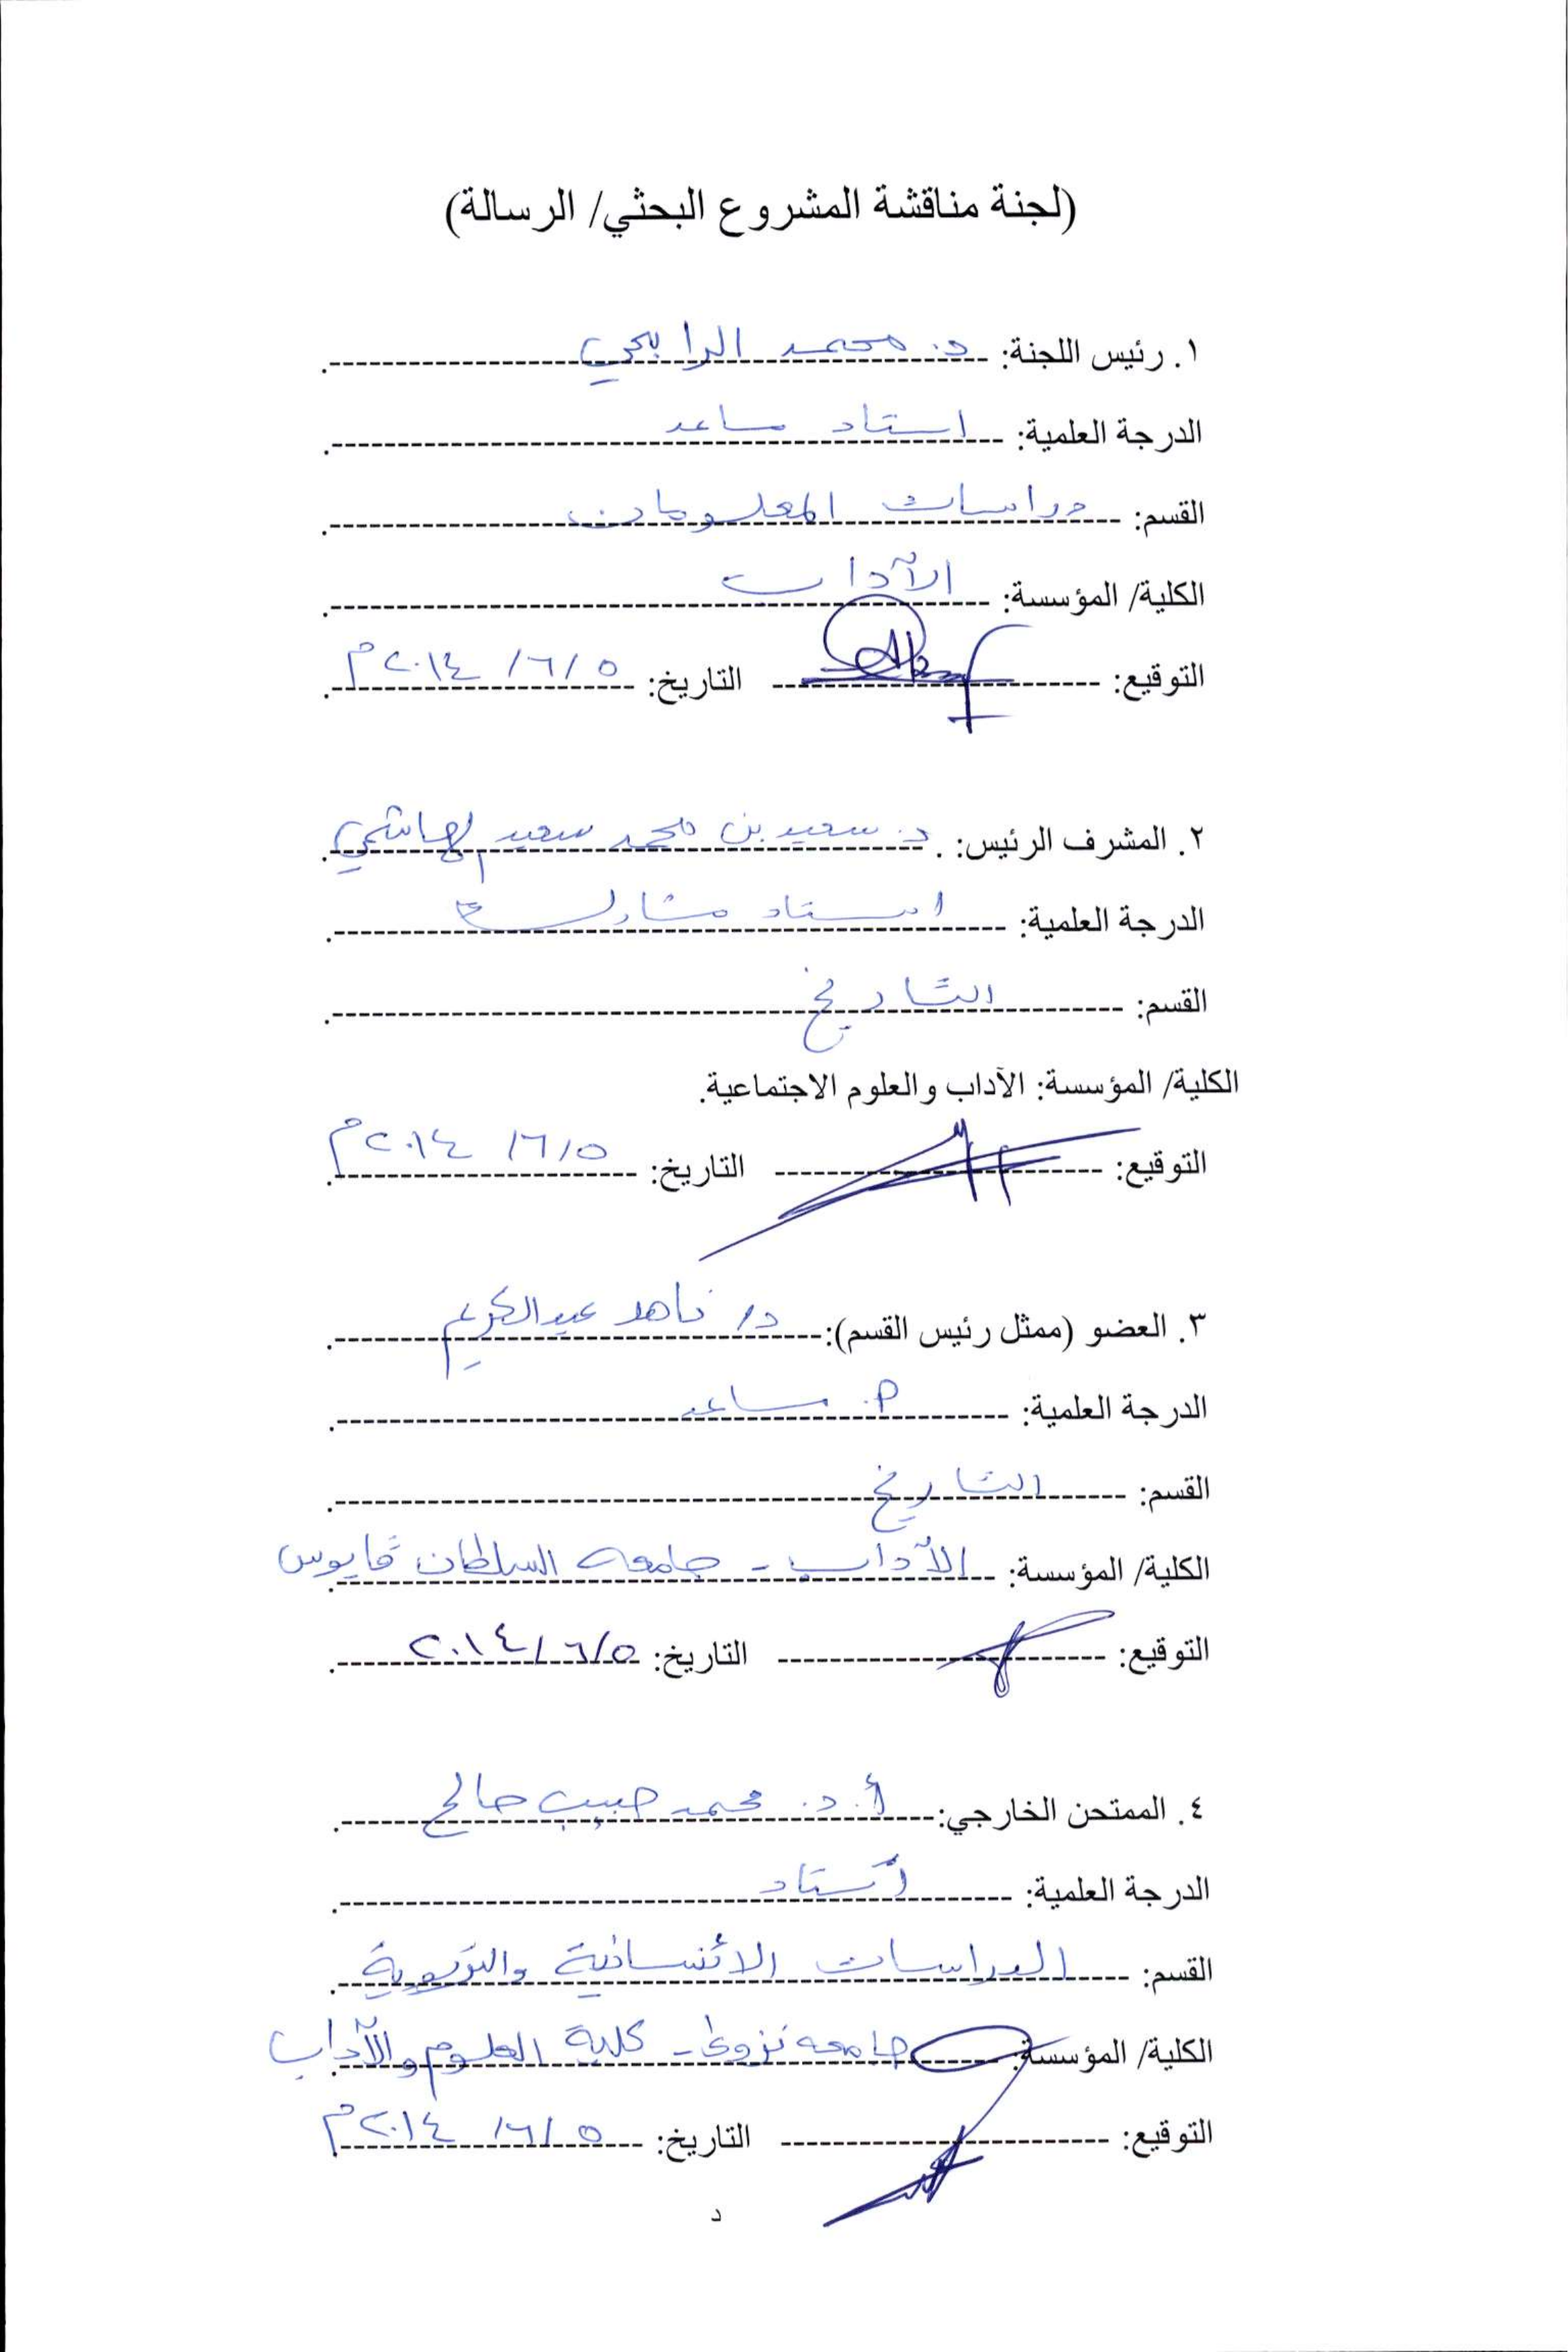 (لجنة مناقشة المشروع البحثي/ الرسالة)
١. رئيس اللجنة: د. محمد الرابحي
الدرجة العلمية: استاد مساعد
القسم: دراسات المعلومات
الكلية/ المؤسسة: الآداب
التوقيع: التاريخ: ٢٠١٤/٦/٥م
٢. المشرف الرئيس: د. سعيد بن محمد سعيد الهاشمي
الدرجة العلمية: استاد مشارك
القسم: التاريخ
الكلية/ المؤسسة: الآداب والعلوم الاجتماعية.
التوقيع: التاريخ: ٢٠١٤/٦/٥م
٣. العضو (ممثل رئيس القسم): د/ ناهد عبدالكريم
الدرجة العلمية: مساعد
القسم: التاريخ
الكلية/ المؤسسة: الآداب - جامعه السلطان قابوس
التوقيع: التاريخ: ٢٠١٤/٦/٥
٤. الممتحن الخارجي: أ. د. محمد حبيب صالح
الدرجة العلمية: أستاد
القسم: الدراسات الانسانية والتربوية
الكلية/ المؤسسة: جامعه نزوى - كلية العلوم والآداب
التوقيع: التاريخ: ٢٠١٤/٦/٥م
د